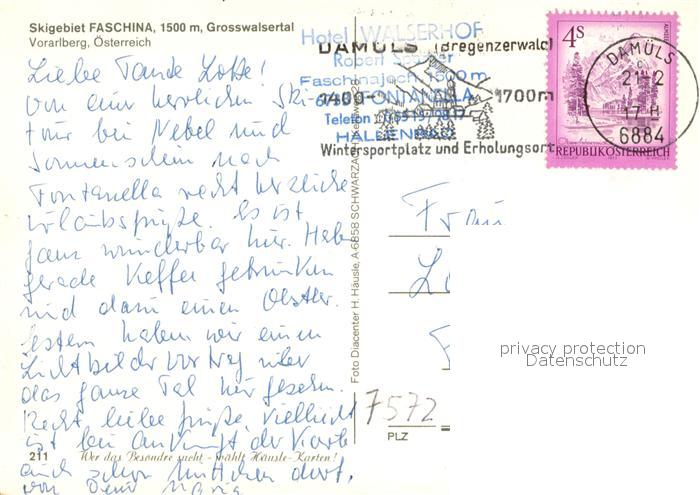 Skigebiet FASCHINA, 1500 m, Grosswalsertal
Vorarlberg, Österreich
Liebe Tante Lotte!
Von einer herrlichen Ski-
tour bei Nebel und
Sonnenschein nach
Fontanella recht herzliche
Urlaubsgrüße. Es ist
ganz wunderbar hier. Haben
gerade Kaffee getrunken
und dazu einen Obstler.
Gestern haben wir einen
Lichtbildervortrag über
das ganze Tal hier gesehen.
Recht liebe Grüße. Vielleicht
ist bei Ankunft der Karte
auch schon Muttchen dort,
von Deiner Maria
211
Wer das Besondre sucht - wählt Häusle-Karten!
Foto Diacenter H. Häusle, A-6858 SCHWARZACH
Hotel WALSERHOF
Robert
Faschinajoch 1500 m
FONTANELLA
Telefon
HALLENBAD
DAMÜLS (Bregenzerwald)
1400 - 1700m
Wintersportplatz und Erholungsort
4S
REPUBLIK ÖSTERREICH
DAMÜLS
17-H
6884
Frau
7572
PLZ
privacy protection
Datenschutz